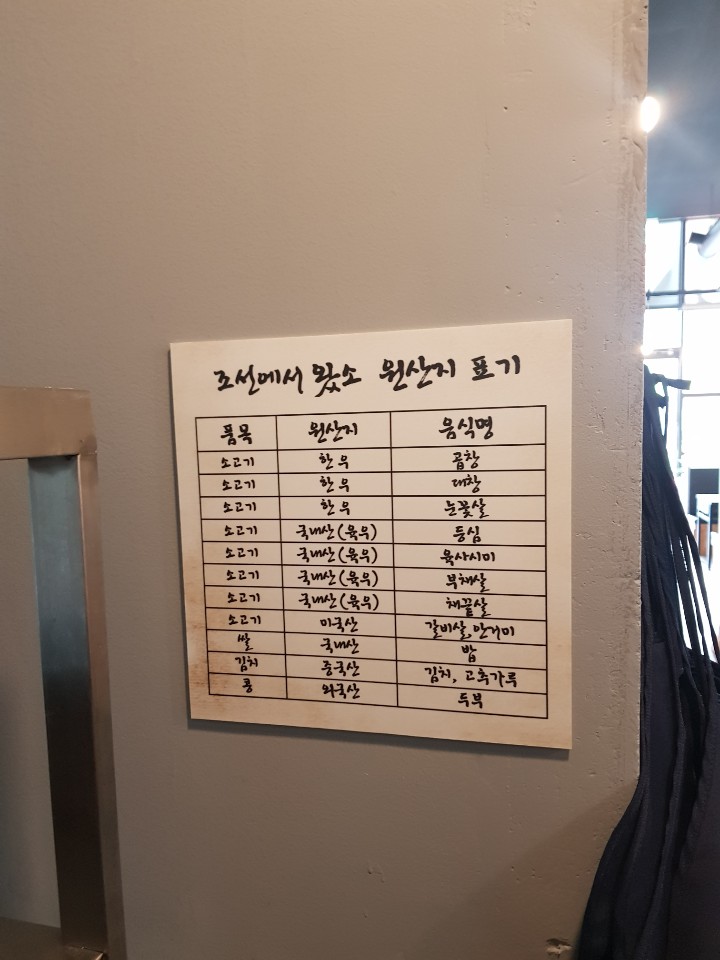 조선에서 왔소 원산지 표기
품목 원산지 음식명
소고기 한우 곱창
소고기 한우 대창
소고기 한우 눈꽃살
소고기 국내산(육우) 등심
소고기 국내산(육우) 육사시미
소고기 국내산(육우) 부채살
소고기 국내산(육우) 채끝살
소고기 미국산 갈비살, 안거미
쌀 국내산 밥
김치 중국산 김치, 고추가루
콩 외국산 두부